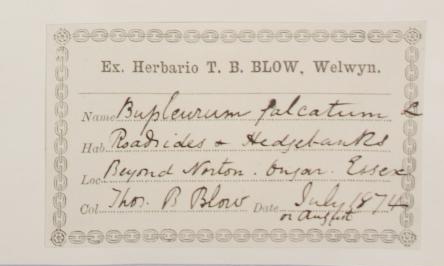 Ex. Herbario T. B. BLOW, Welwyn.
Name Bupleurum falcatum L
Hab. Roadsides & Hedgebanks
Loc. Beyond Norton. Ongar. Essex
Col. Thos. B Blow Date July 1874
or August